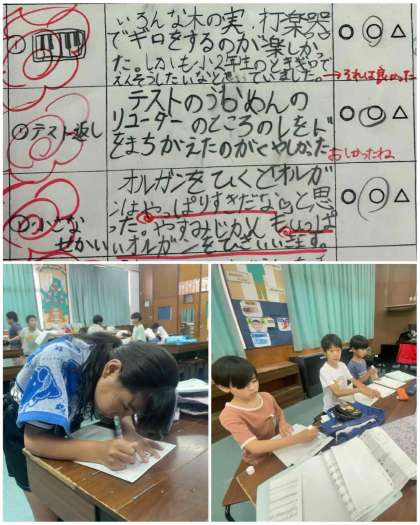 いろんな木の実、打楽器
でギロをするのが楽しかっ
た。しかも小2年生のときギロで
えんそうしたいなと
→それは良かった
①テスト返し
テストのうらめんの
リコーダーのところのレをド
をまちがえたのがくやしかった
おしかったね
②小さな
せかい
オルガンをひくとオルガ
ンはやっぱりすきだな♡と思
った。やすみじかんも
オルガンをひき